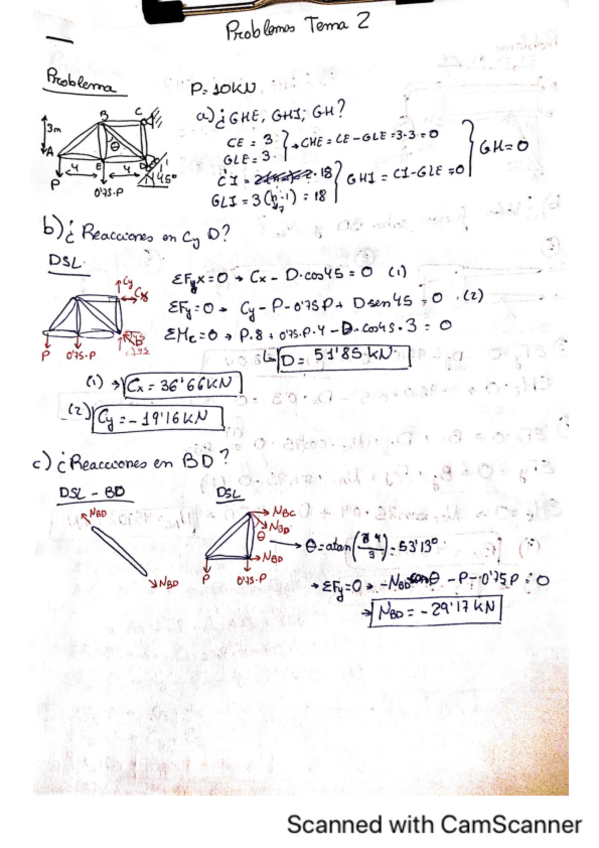 Problemas Tema 2
Problema
P=10KN
a) ¿GHE, GHI, GH?
CE = 3
GLE = 3
→ GHE = CE - GLE = 3-3=0
CI = 18
GLI = 3(7-1) = 18
GHI = CI-GLE=0
GH=0
3m
A
B
C
E
D
θ
4
4
45°
P
0'75.P
b) ¿Reacciones en C y D?
DSL
Cy
Cx
P
0'75.P
ΣFx=0 → Cx - D·cos45 = 0 (1)
ΣFy=0 → Cy - P - 0'75P + D sen45 = 0 (2)
ΣMc=0 → P·8 + 0'75·P·4 - D·cos45·3 = 0
↳ D = 51'85 KN
(1) → Cx = 36'66KN
(2) Cy = -19'16 KN
c) ¿Reacciones en BD?
DSL - BD
DSL
NBD
NBD
NBC
NBD
θ
NBD
P
0'75.P
→ θ=atan(4/3)=53'13°
→ ΣFy=0 → -NBD cosθ - P - 0'75P = 0
→ NBD = -29'17 KN
Scanned with CamScanner